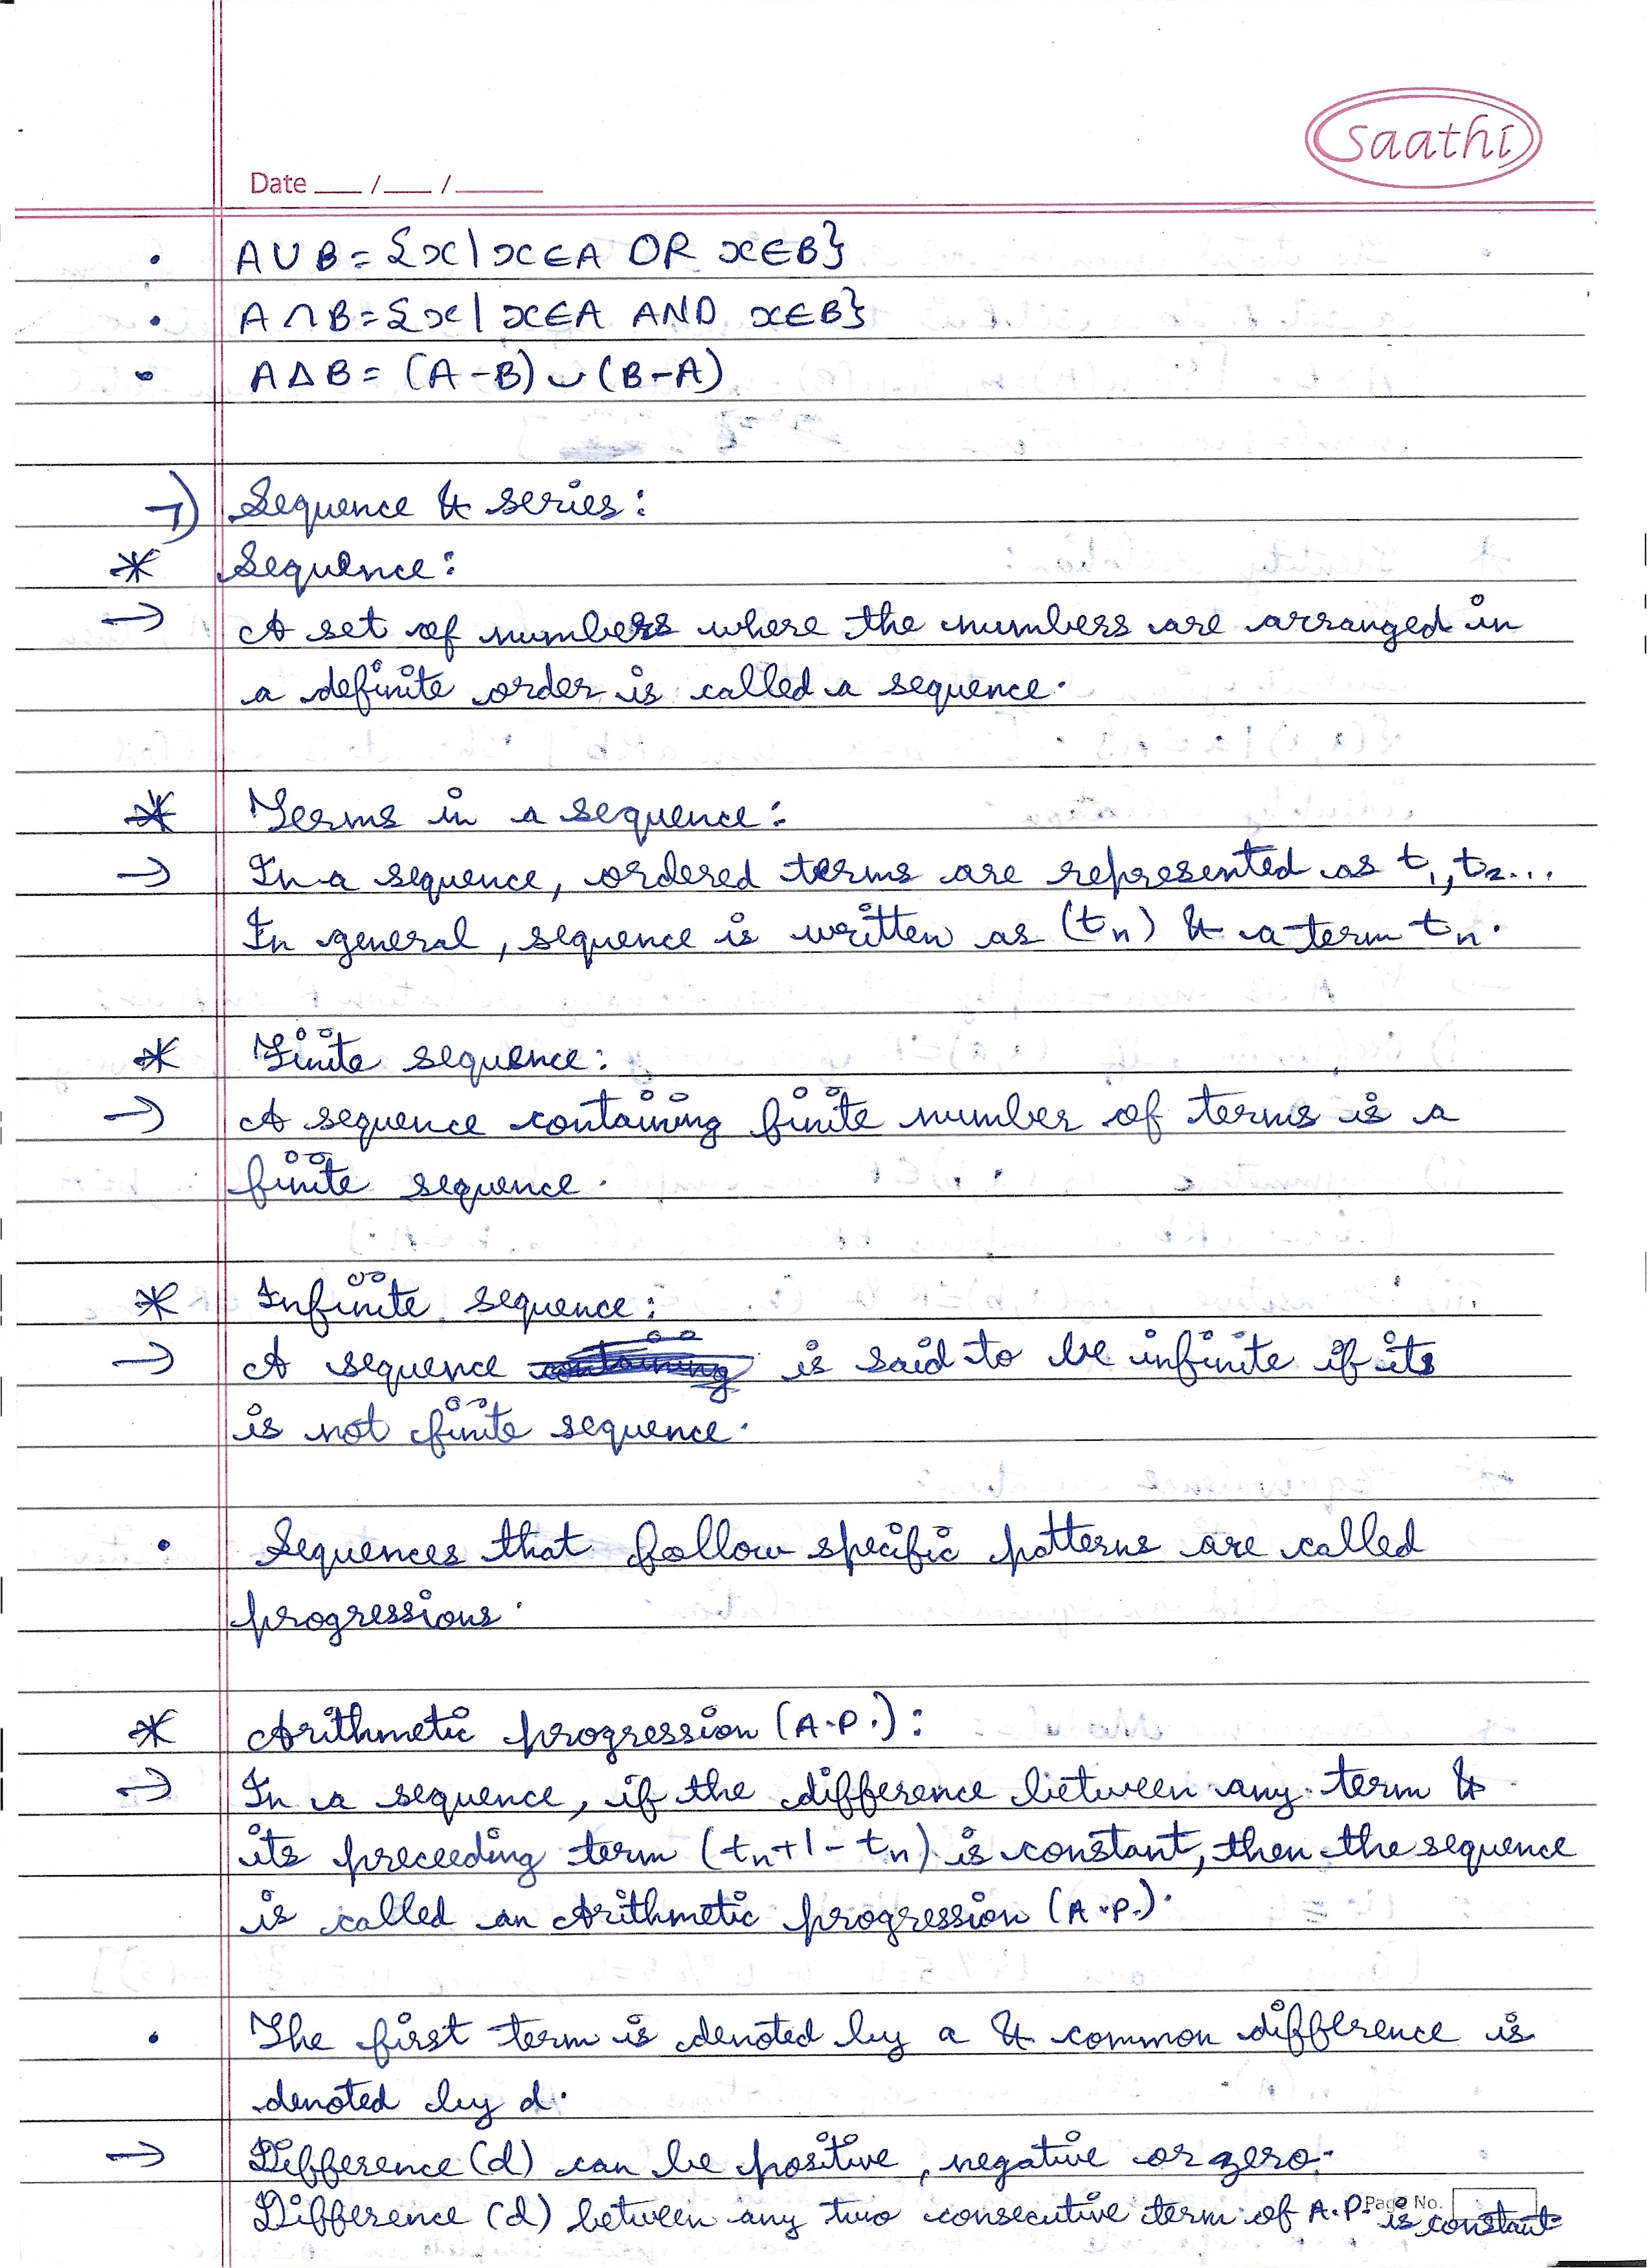 saathi
Date ___ /___ /______
• A∪B = {x | x∈A OR x∈B}
• A∩B = {x | x∈A AND x∈B}
• A∆B = (A-B)∪(B-A)
7) Sequence & series:
* Sequence:
→ A set of numbers where the numbers are arranged in
a definite order is called a sequence.
* Terms in a sequence:
→ In a sequence, ordered terms are represented as t₁, t₂...
In general, sequence is written as (tₙ) & a term tₙ.
* Finite sequence:
→ A sequence containing finite number of terms is a
finite sequence.
* Infinite sequence:
→ A sequence containing is said to be infinite if its
is not finite sequence.
• Sequences that follow specific patterns are called
progressions.
* Arithmetic progression (A.P.):
→ In a sequence, if the difference between any term &
its preceeding term (tₙ+1 - tₙ) is constant, then the sequence
is called an Arithmetic progression (A.P.).
• The first term is denoted by a & common difference is
denoted by d.
→ Difference (d) can be positive, negative or zero.
Difference (d) between any two consecutive term of A.P. is constant
Page No.